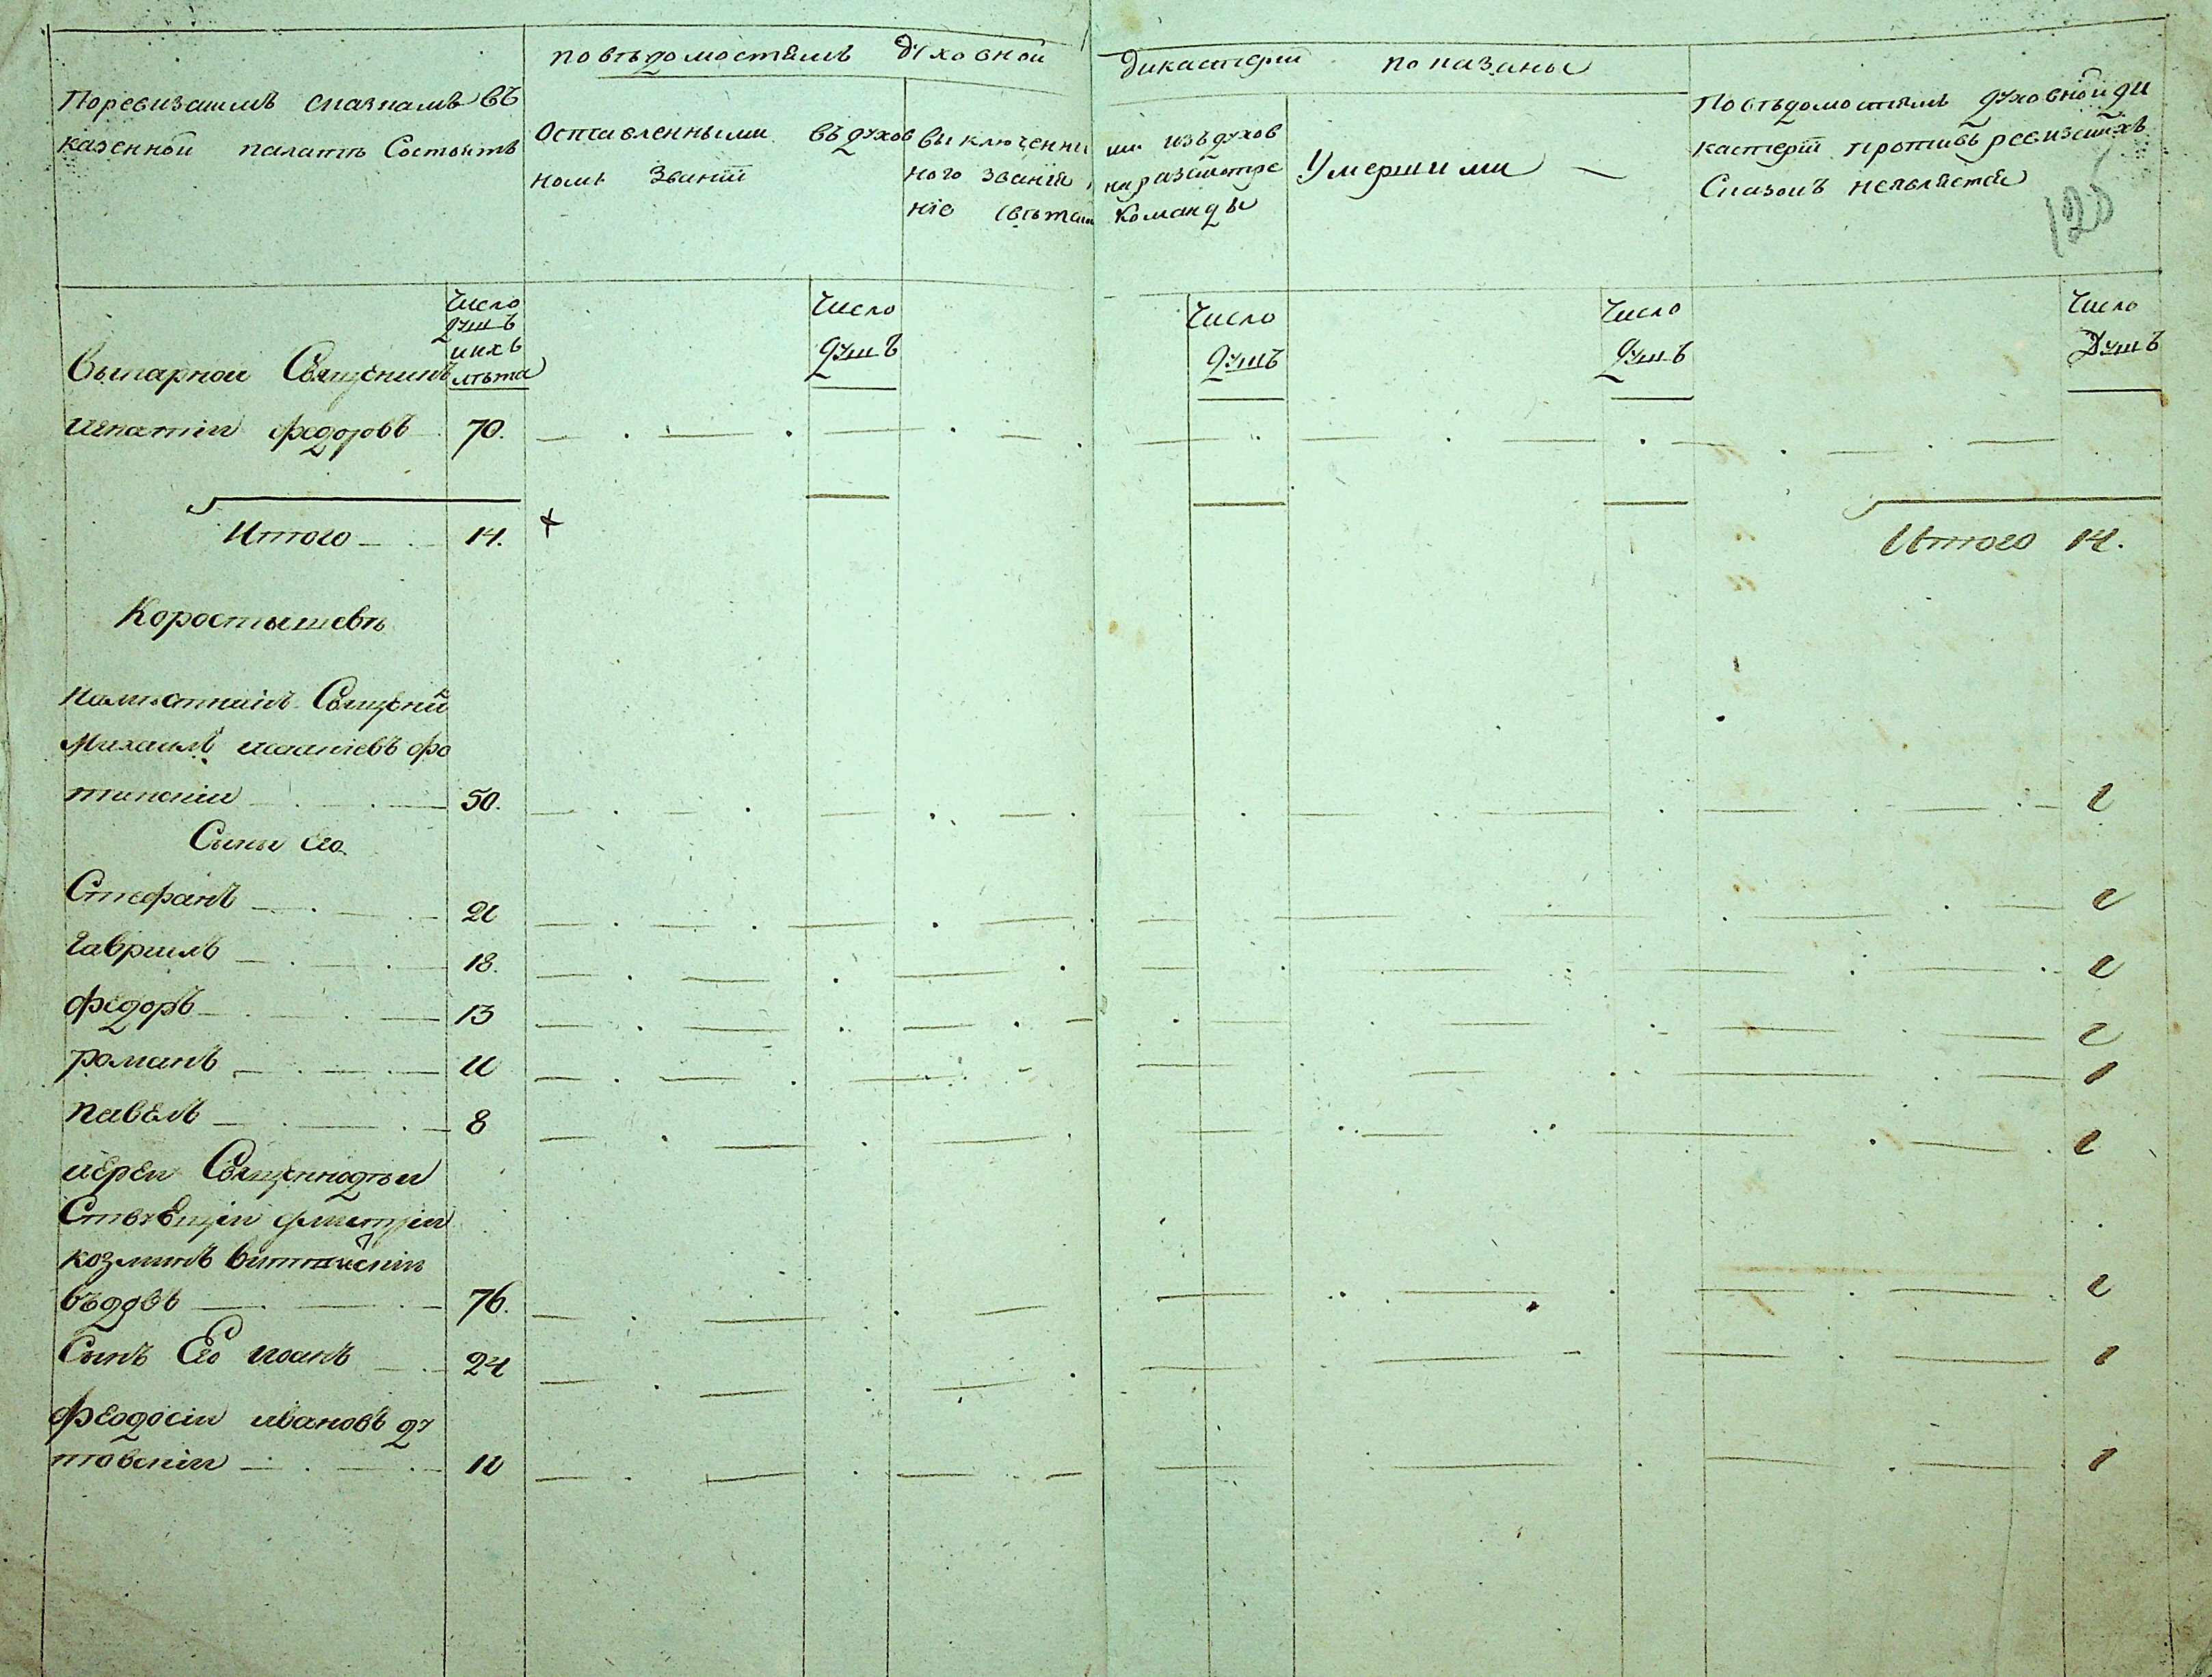 по вѣдомостямъ духовной дикастерии показаны
По ревизскимъ сказкамъ въ
казенной палатѣ Состоитъ
Оставленными въ духов
номъ Званіи
выключенны
ми изъ духов
ного званія
на разсмотре
ніе свѣтск
Команды
Умершими
По вѣдомостямъ духовной ди
кастеріи противъ ревизскихъ
Сказокъ неявляется
125
Число
душъ
ихъ
лѣта
Число
душъ
Число
душъ
Число
душъ
Число
Душъ
Викарной Священникъ
игнатіи федоровъ 70.
Итого 14. +
Итого 14.
Коростышевъ
Намѣстникъ Священни
Михаилъ фо
тинскіи 50. 1
Сыны его
Стефанъ 21 1
Гавриилъ 18. 1
Федоръ 13 1
романъ 11 1
павелъ 8 1
иереи Священнодѣи
Ствующіи дмитріи
козминъ
вдовъ 76. 1
Сынъ Его иоанъ 24 1
феодосіи ивановъ ду
товскіи 11 1